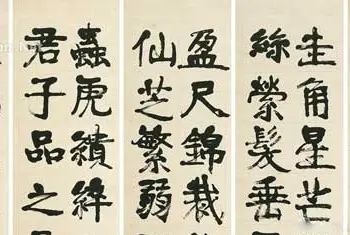 圭角星芒
絲縈髮垂
盈尺錦裁
仙芝繁弱
蟲虎績絆
君子品之